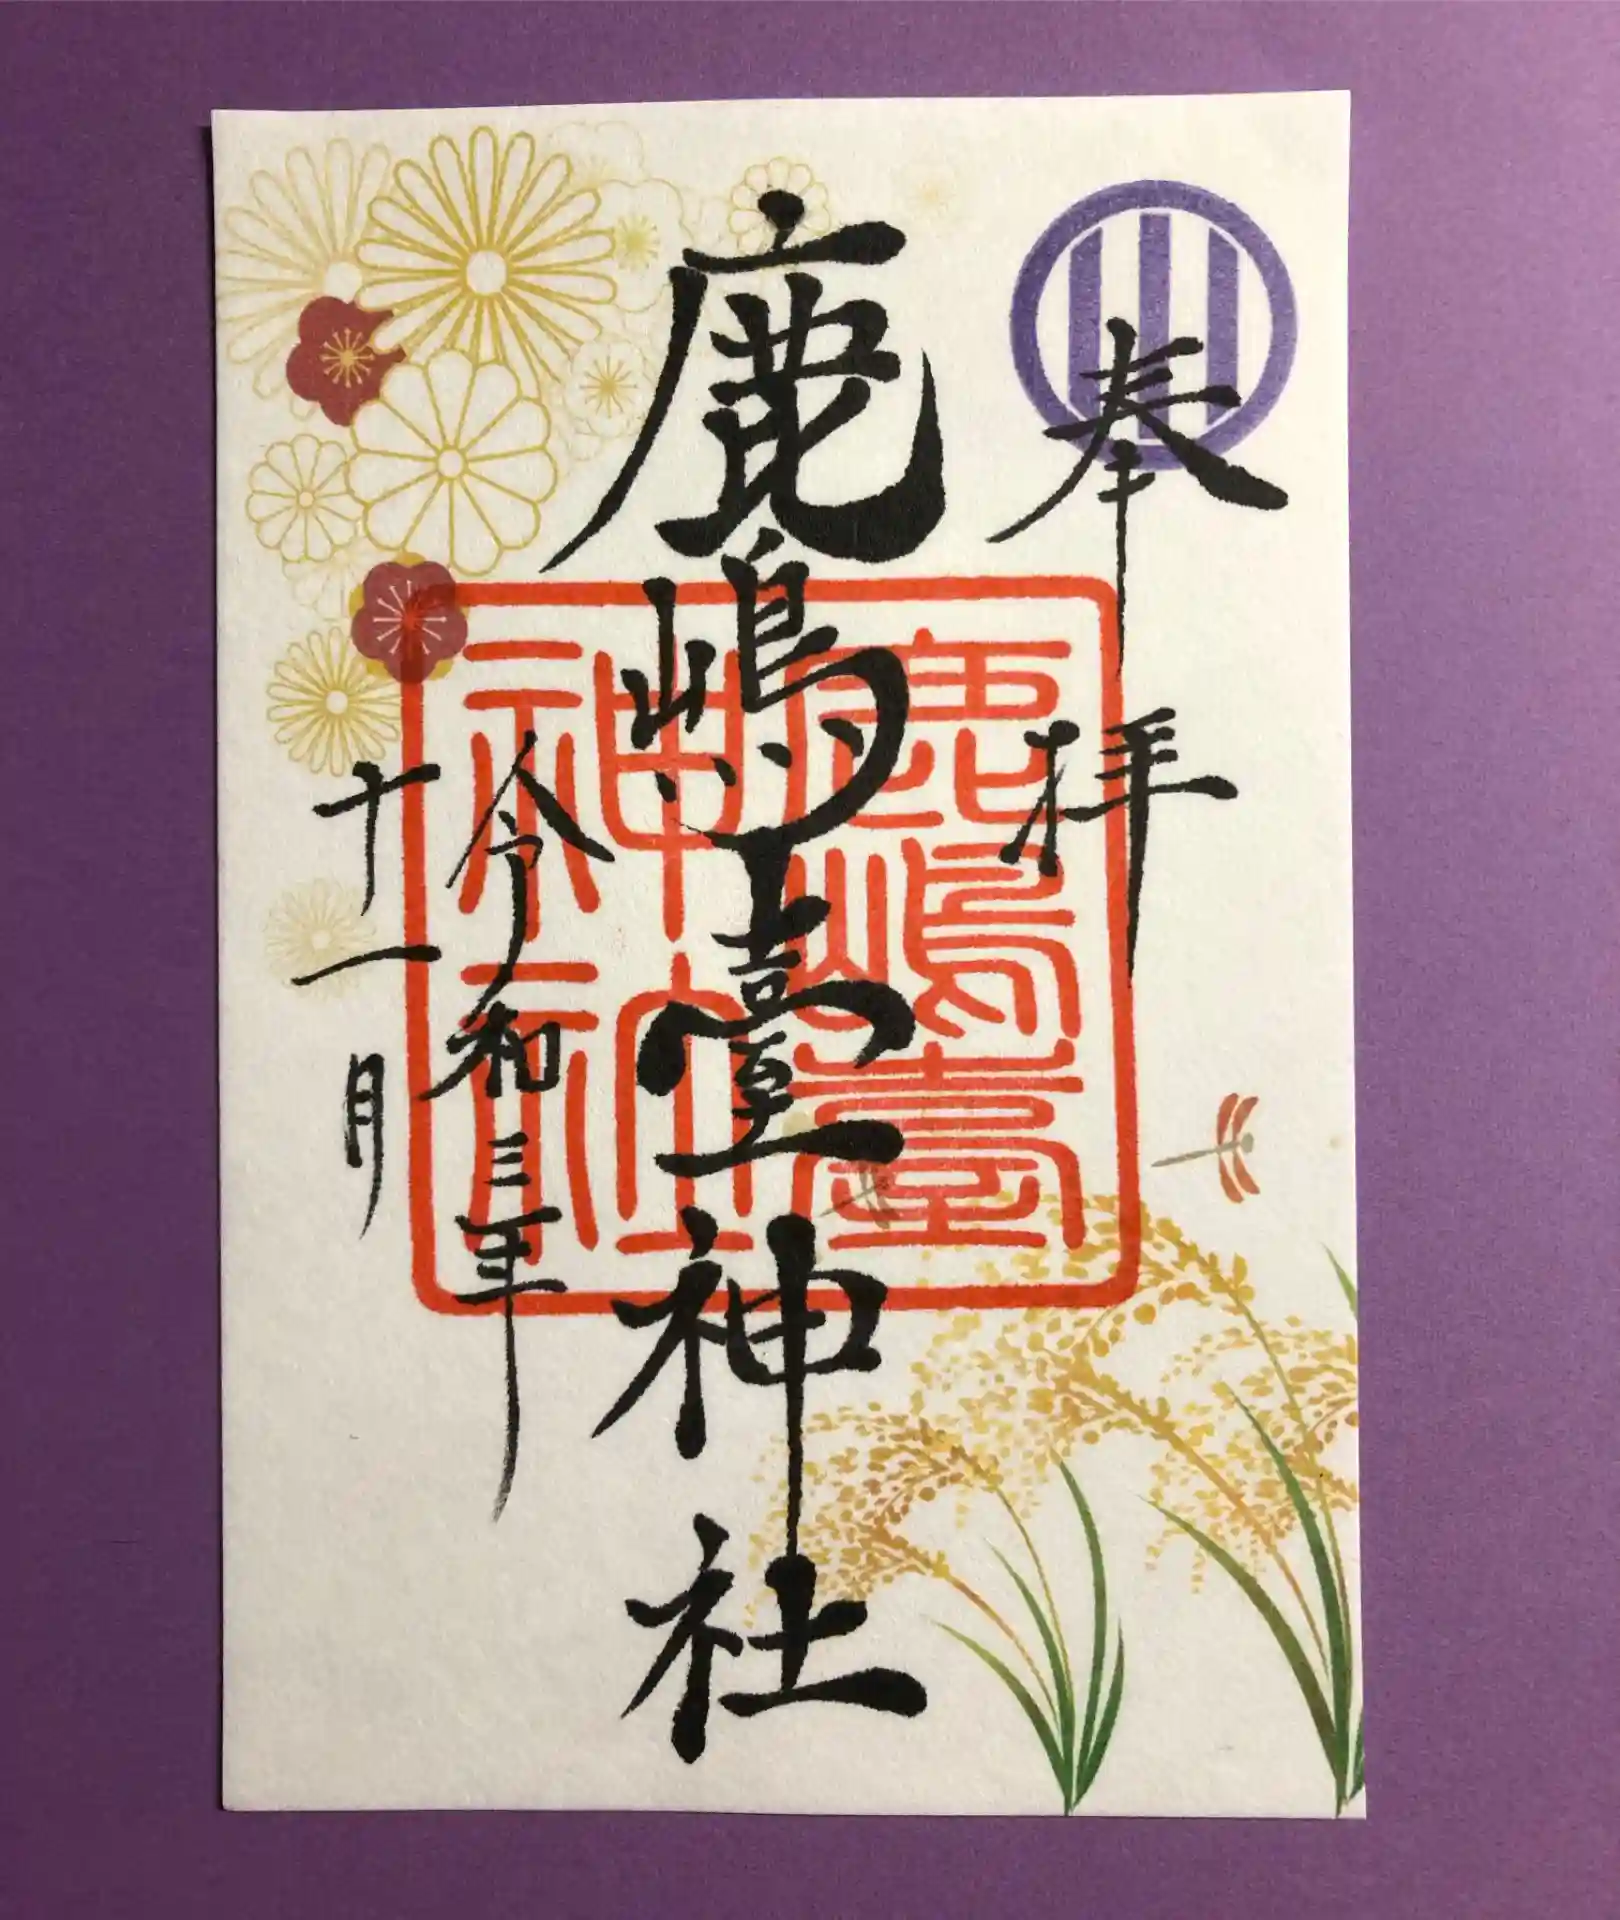 奉拝
鹿嶋臺神社
鹿嶋臺
神社
令和三年
十一月